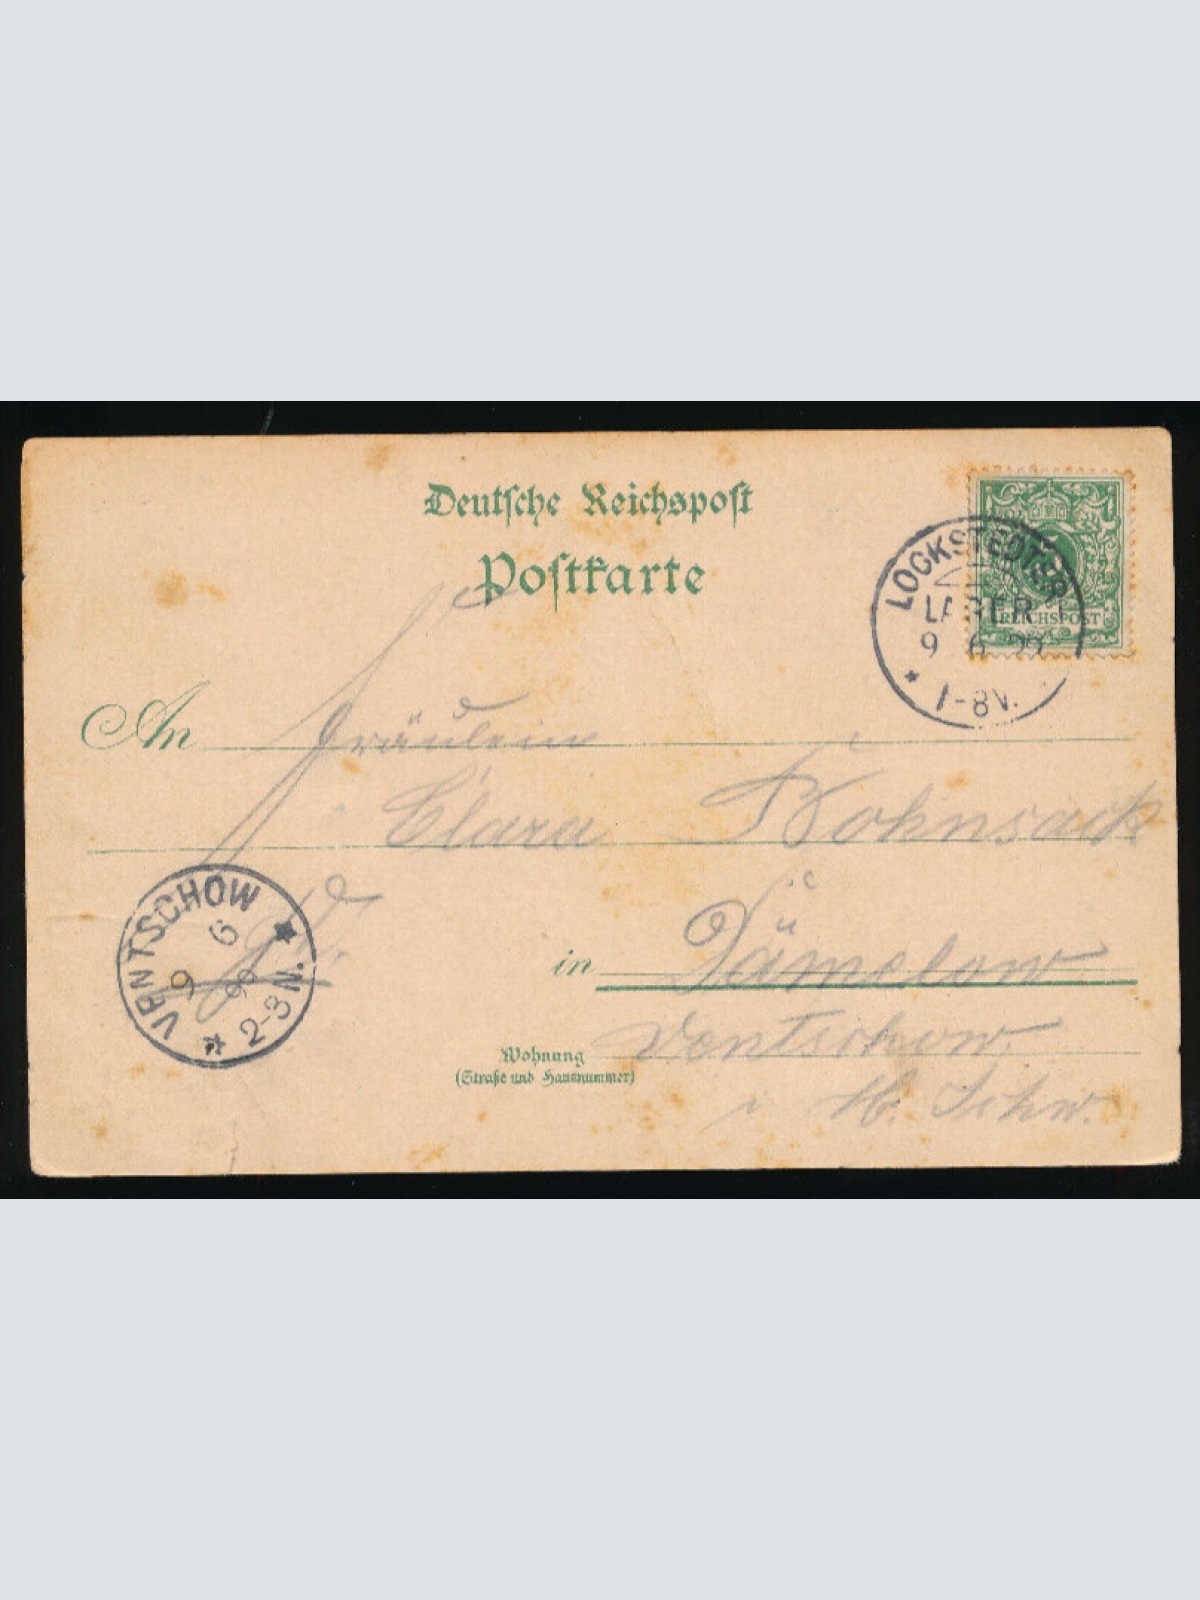 Deutsche Reichspost
Postkarte
LOCKSTEDTER
LAGER
9 6 99
7-8V.
REICHSPOST
An Fräulein
Clara Kohnsack
in Dämelow
VENTSCHOW
9 6 99
2-3N.
Wohnung
(Straße und Hausnummer)
Ventschow
i M. Schw.